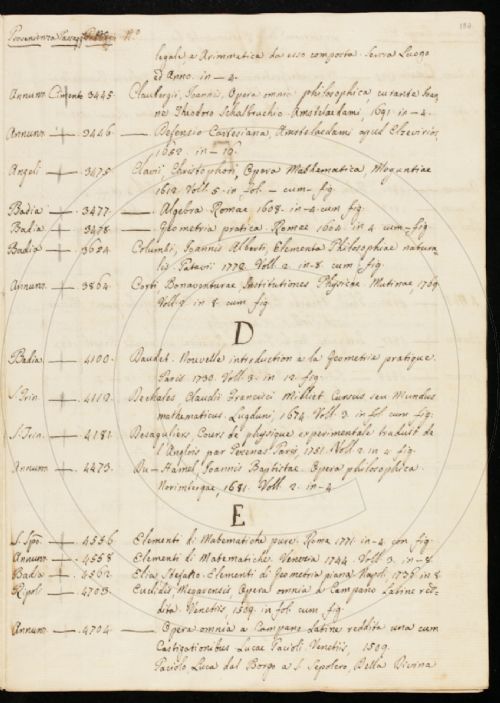 Provenienza Passag. N.º 184.
legale, e Arimmetica da esso composta. Senza Luogo
ed Anno. in-4.
Annunz. Cimento 3445. Claubergii, Joannis, Opera omnia philosophica, curante Joan-
ne Theodoro Schalbruchio. Amstelaedami, 1691. in-4.
Annunz. 3446. Defensio Cartesiana, Amstelaedami apud Elzevirium
1652. in-16.
Angeli 3475. Clavii, Christophori, Opera Mathematica, Moguntiae
1612. Voll. 5. in fol. cum fig.
Badia 3477. Algebra. Romae, 1608. in-4. cum fig.
Badia 3478. Geometria pratica. Romae 1604. in 4. cum fig.
Badia 3654. Columbi, Joannis Alberti, Elementa Philosophiae natura-
lis. Patavii 1772. Voll. 2. in-8. cum fig.
Annunz. 3864. Corti Bonaventurae Institutiones Physicae. Mutinae, 1769.
Voll. 2 in 8. cum fig.
D
Badia 4100. Daudet. Nouvelle introduction a la Geometrie pratique.
Paris 1730. Voll. 3. in 12. fig.
S. Trin. 4112. Dechales Claudii Francisci Milliet Cursus seu Mundus
mathematicus. Lugduni, 1674. Voll. 3. in fol. cum fig.
S. Trin. 4181. Desaguliers, Cours de physique experimentale traduit de
l'Anglois par Pezenas. Paris, 1751. Voll. 2. in 4. fig.
Annunz. 4473. Du-Hamel, Joannis Baptistae. Opera philosophica.
Norimbergae, 1681. Voll. 2. in-4.
E
S. Spo. 4556. Elementi di Matematiche pure. Roma 1771. in-4. con fig.
Annunz. 4558. Elementi di Matematiche. Venezia 1744. Voll. 3. in-8.
Badia 4562. Elia Stefano. Elementi di Geometria piana. Napoli, 1736 in 8.
Ripoli 4703. Euclidis Megarensis, Opera omnia a Campano Latine red-
dita. Venetiis 1509. in fol. cum fig.
Annunz. 4704. Opera omnia a Campano Latine reddita una cum
Castigationibus Lucae Pacioli. Venetiis, 1509.
Paciolo, Luca dal Borgo a S. Sepolcro, Della Divina